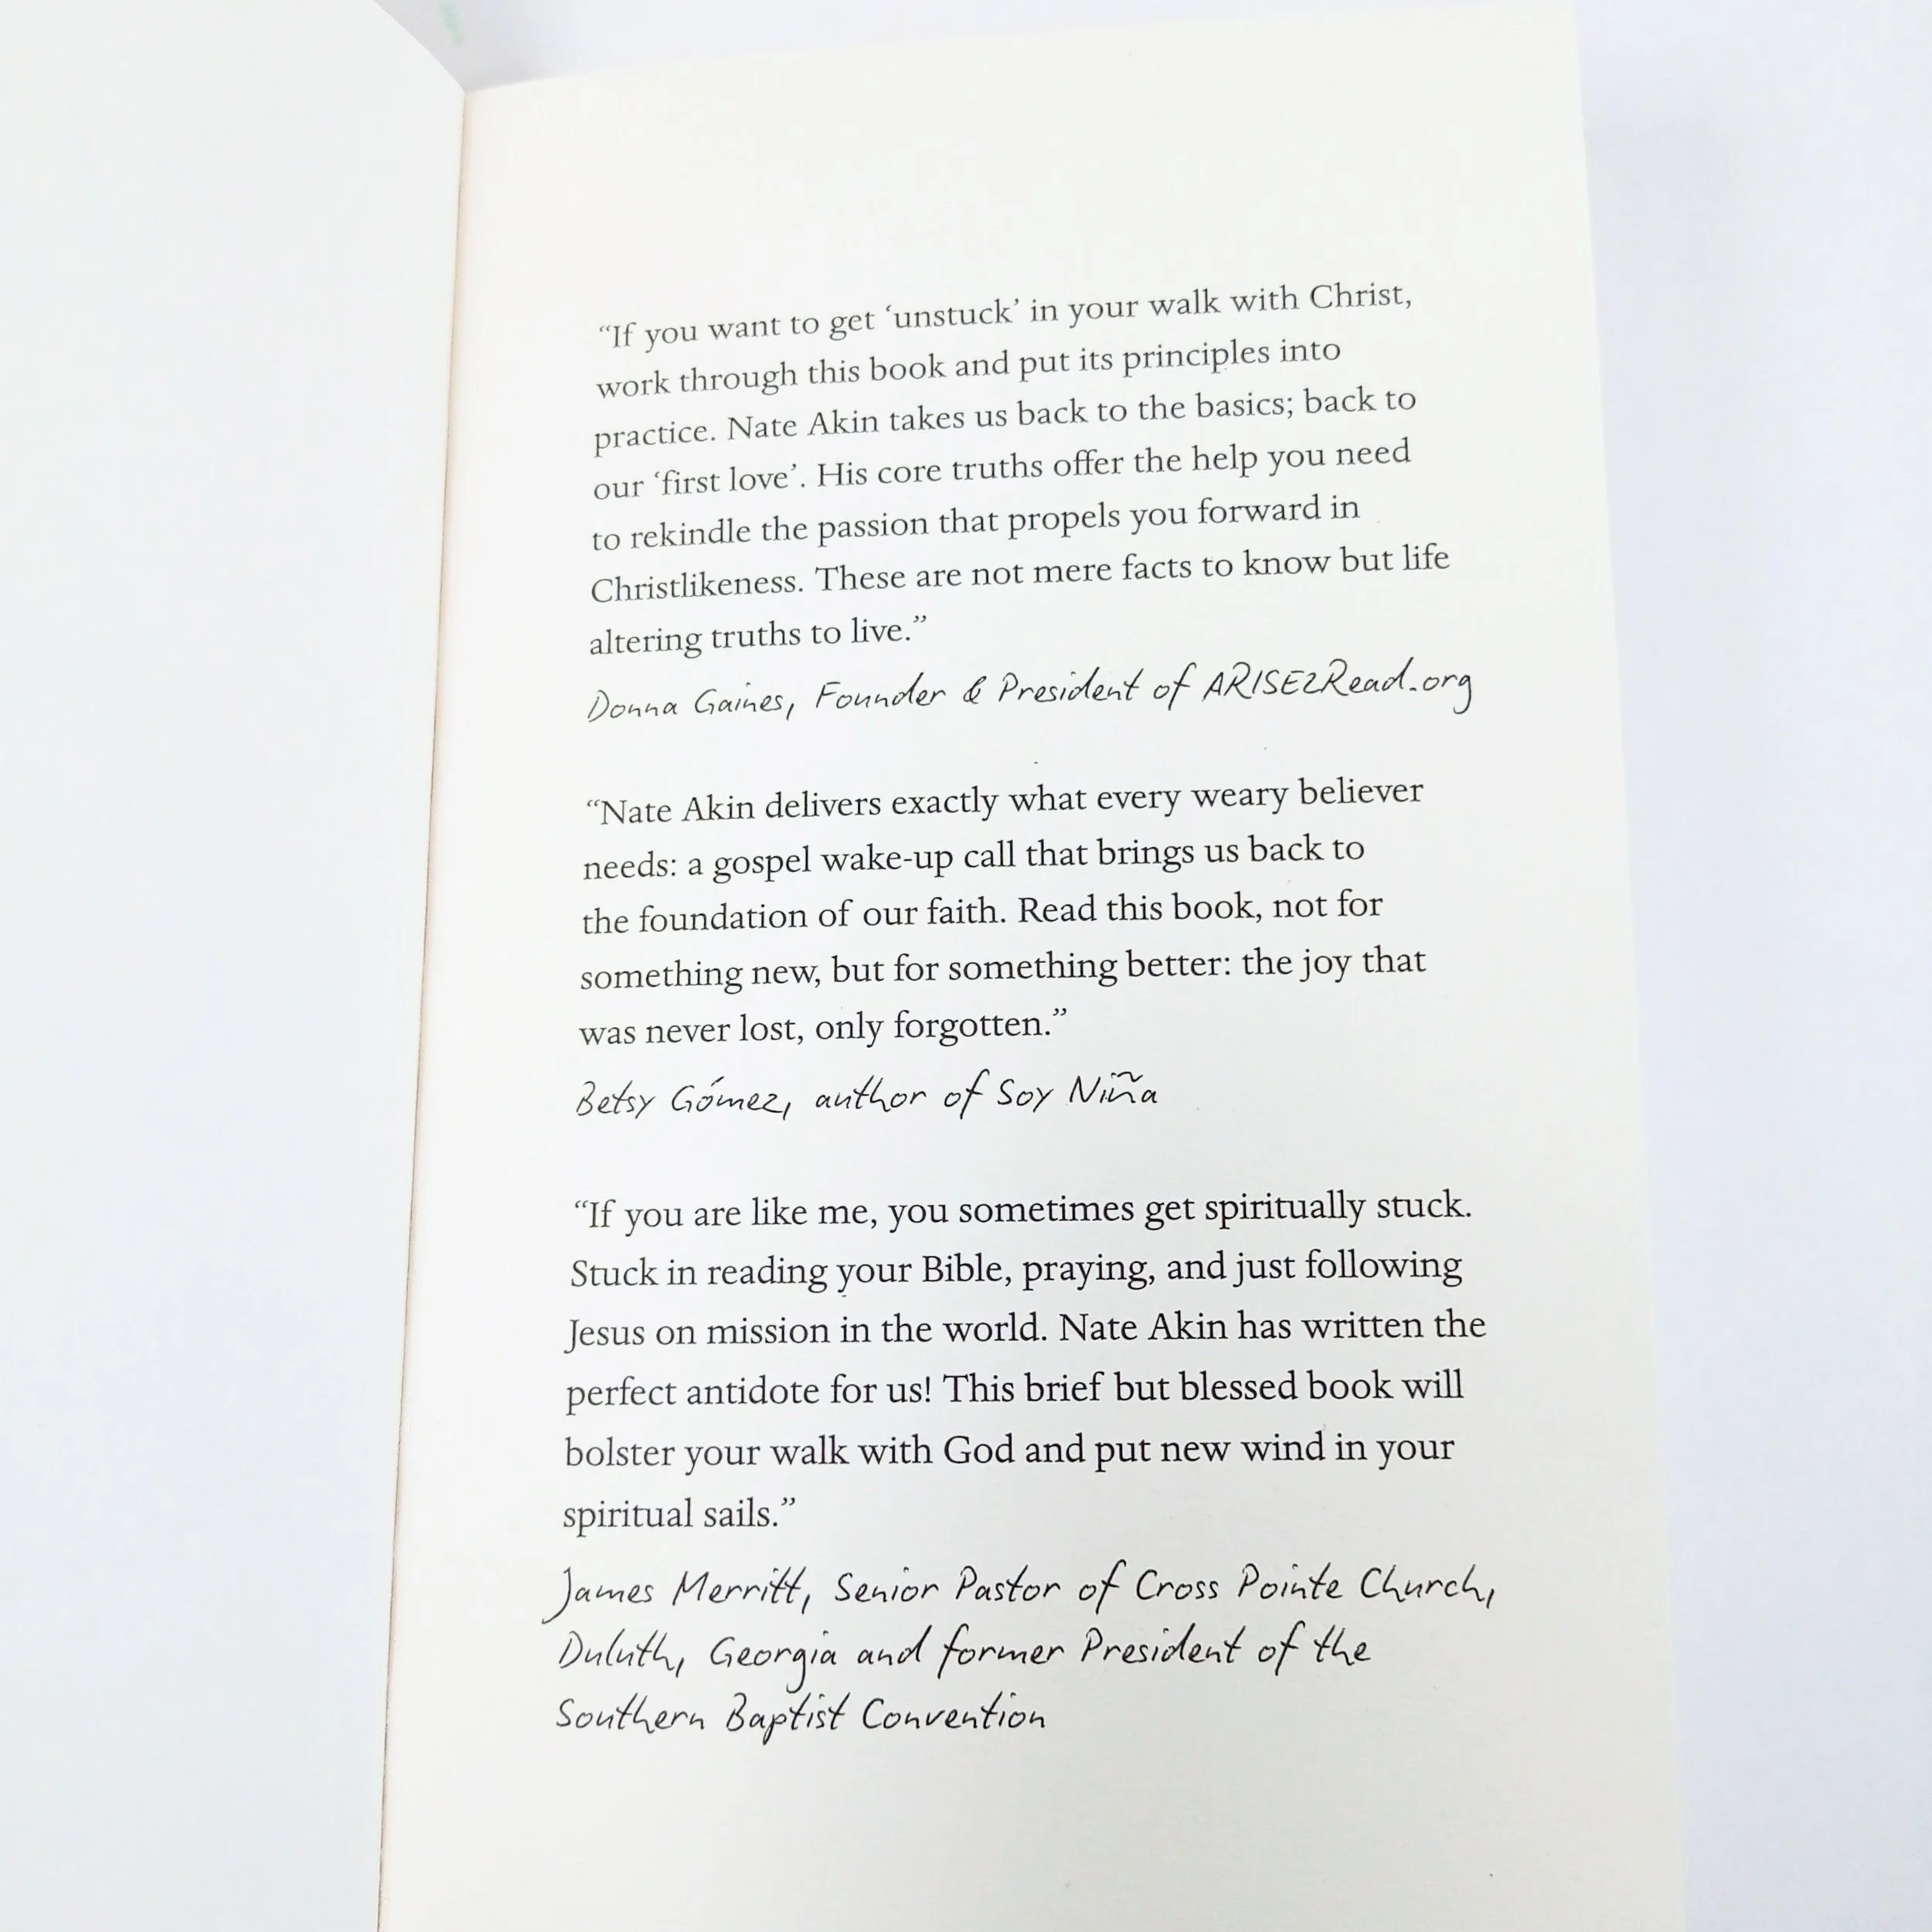 “If you want to get ‘unstuck’ in your walk with Christ,
work through this book and put its principles into
practice. Nate Akin takes us back to the basics; back to
our ‘first love’. His core truths offer the help you need
to rekindle the passion that propels you forward in
Christlikeness. These are not mere facts to know but life
altering truths to live.”
Donna Gaines, Founder & President of ARISE2Read.org
“Nate Akin delivers exactly what every weary believer
needs: a gospel wake-up call that brings us back to
the foundation of our faith. Read this book, not for
something new, but for something better: the joy that
was never lost, only forgotten.”
Betsy Gómez, author of Soy Niña
“If you are like me, you sometimes get spiritually stuck.
Stuck in reading your Bible, praying, and just following
Jesus on mission in the world. Nate Akin has written the
perfect antidote for us! This brief but blessed book will
bolster your walk with God and put new wind in your
spiritual sails.”
James Merritt, Senior Pastor of Cross Pointe Church,
Duluth, Georgia and former President of the
Southern Baptist Convention